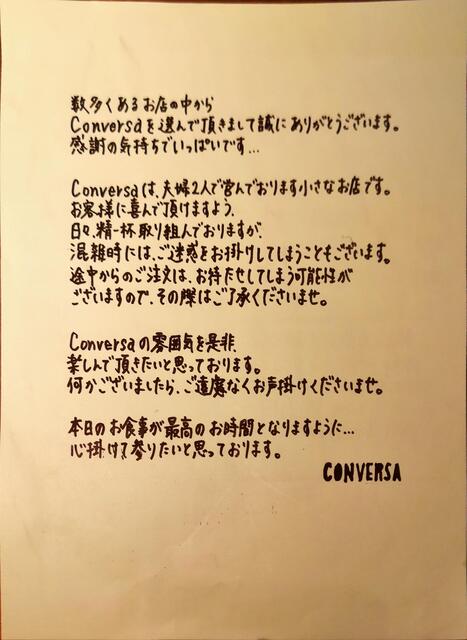 数多くあるお店の中から
Conversaを選んで頂きまして誠にありがとうございます。
感謝の気持ちでいっぱいです…
Conversaは、夫婦2人で営んでおります小さなお店です。
お客様に喜んで頂けますよう、
日々、精一杯取り組んでおりますが、
混雑時には、ご迷惑をお掛けしてしまうこともございます。
途中からのご注文は、お待たせしてしまう可能性が
ございますので、その際はご了承くださいませ。
Conversaの雰囲気を是非、
楽しんで頂きたいと思っております。
何かございましたら、ご遠慮なくお声掛けくださいませ。
本日のお食事が最高のお時間となりますように…
心掛けて参りたいと思っております。
CONVERSA